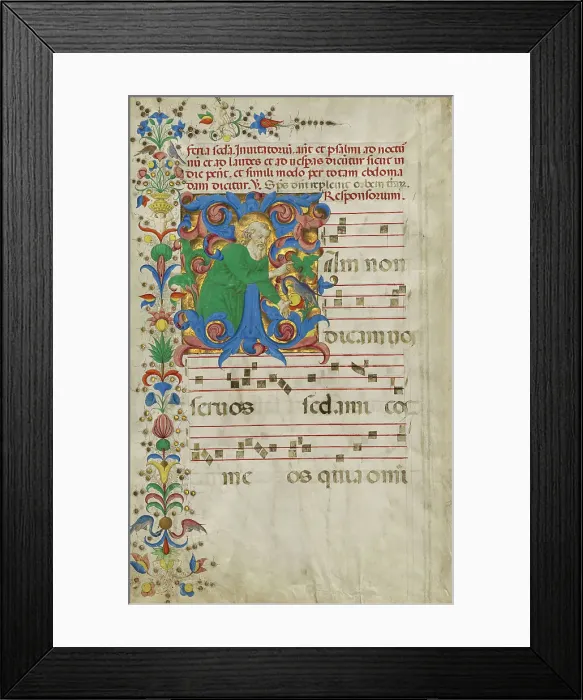 feria scďa. Inuitatoriū. añt et psalmi ad noctu
nū et ad laudes et ad uespas dicūtur sicut in
die pent. et simili modo per totam ebdoma
dam dicitur. V. Sp̄s dn̄i repleuit orbem
Responsorium.
am non
dicam uo
seruos sed ami co
me os quia omī